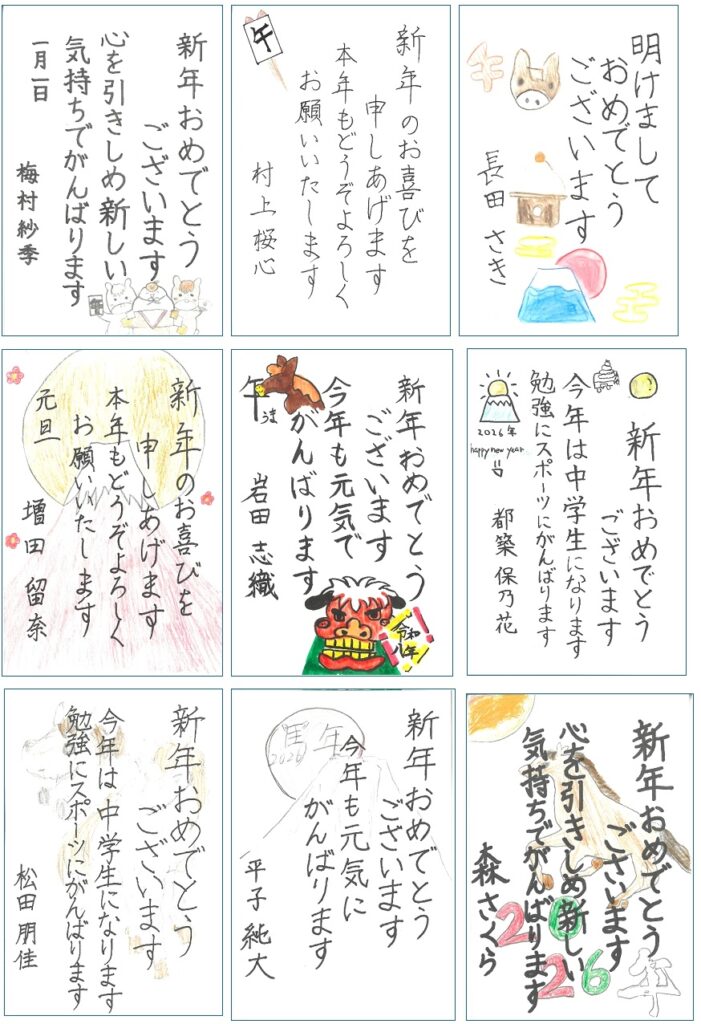 新年おめでとう
ございます
心を引きしめ新しい
気持ちでがんばります
一月一日
梅村紗季
午
午
新年のお喜びを
申しあげます
本年もどうぞよろしく
お願いいたします
村上桜心
明けまして
おめでとう
ございます
午
長田さき
新年のお喜びを
申しあげます
本年もどうぞよろしく
お願いいたします
元旦
増田留奈
新年おめでとう
ございます
今年も元気で
がんばります
午
うま
岩田志織
令和
八年
新年おめでとう
ございます
今年は中学生になります
勉強にスポーツにがんばります
2026年
happy new year
都築保乃花
新年おめでとう
ございます
今年は中学生になります
勉強にスポーツにがんばります
松田朋佳
新年おめでとう
ございます
今年も元気に
がんばります
馬年
2026
平子純大
新年おめでとう
ございます
心を引きしめ新しい
気持ちでがんばります
森さくら
2026年